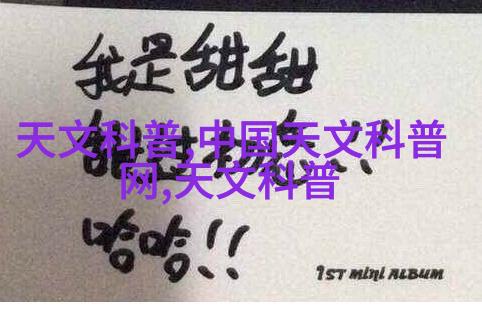 我是甜甜
天文科普,中国天文科普
甜过!!
网,天文科普
哈哈!!
1ST MINI ALBUM